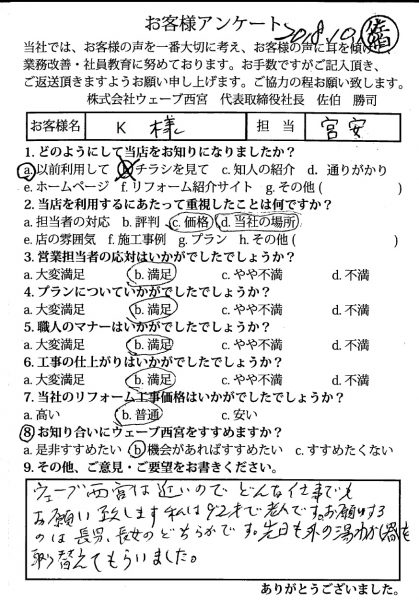 お客様アンケート 2018.10.1
当社では、お客様の声を一番大切に考え、お客様の声に耳を傾け
業務改善・社員教育に努めております。お手数ですがご記入頂き、
ご返送頂きますようお願い申し上げます。ご協力の程お願い致します。
株式会社ウェーブ西宮 代表取締役社長 佐伯 勝司
お客様名 K 様 担当 宮安
1. どのようにして当店をお知りになりましたか?
a. 以前利用して b. チラシを見て c. 知人の紹介 d. 通りがかり
e. ホームページ f. リフォーム紹介サイト g. その他 ( )
2. 当店を利用するにあたって重視したことは何ですか?
a. 担当者の対応 b. 評判 c. 価格 d. 当社の場所
e. 店の雰囲気 f. 施工事例 g. プラン h. その他 ( )
3. 営業担当者の応対はいかがでしたでしょうか?
a. 大変満足 b. 満足 c. やや不満 d. 不満
4. プランについていかがでしたでしょうか?
a. 大変満足 b. 満足 c. やや不満 d. 不満
5. 職人のマナーはいかがでしたでしょうか?
a. 大変満足 b. 満足 c. やや不満 d. 不満
6. 工事の仕上がりはいかがでしたでしょうか?
a. 大変満足 b. 満足 c. やや不満 d. 不満
7. 当社のリフォーム工事価格はいかがでしたでしょうか?
a. 高い b. 普通 c. 安い
8. お知り合いにウェーブ西宮をすすめますか?
a. 是非すすめたい b. 機会があればすすめたい c. すすめたくない
9. その他、ご意見・ご要望をお書きください。
ウェーブ西宮は近いので どんな仕事でも
お願い致します 私は92才で老人です。お願いする
のは長男、長女のどちらかです。先日も外の湯わかし器を
取り替えてもらいました。
ありがとうございました。